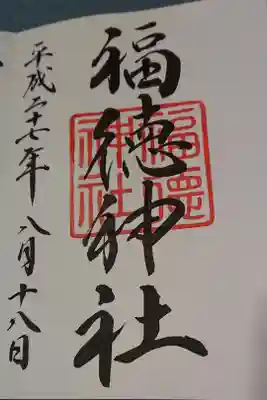 福徳神社
福德神社
平成二十七年 八月十八日